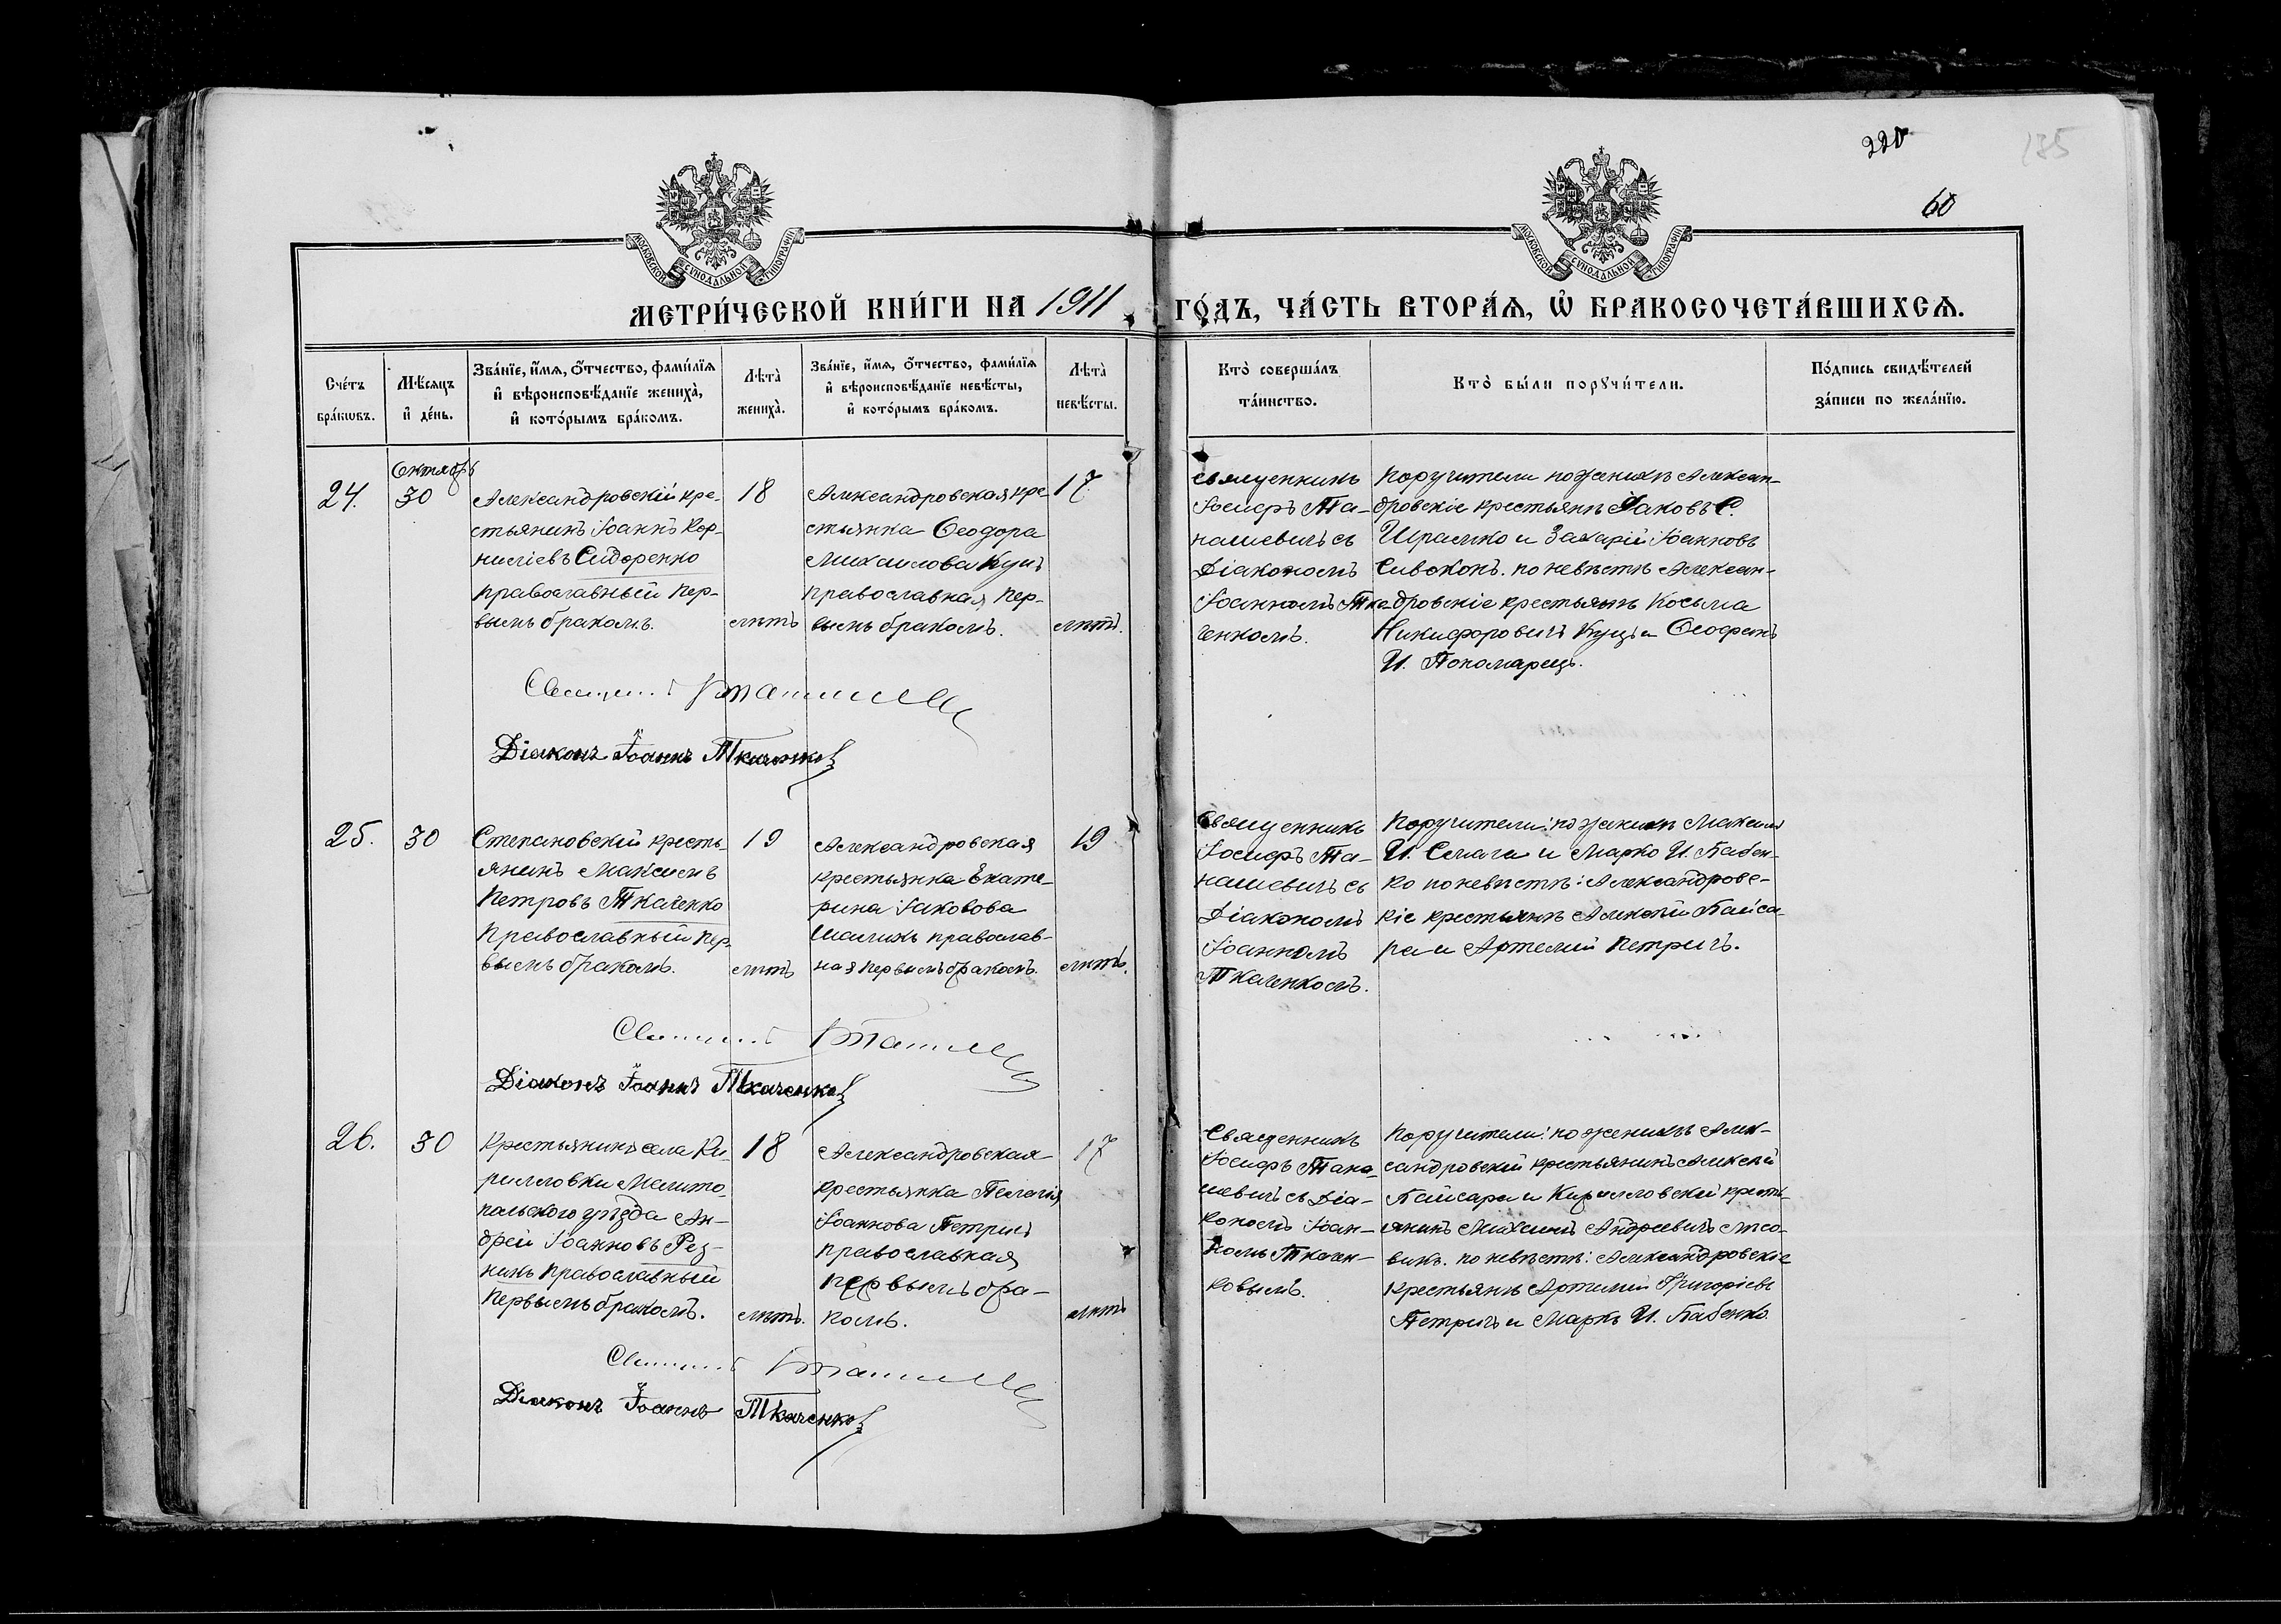 220
135
60
МОСКОВСКОЙ СУНОДАЛЬНОЙ ТИПОГРАФІИ
МОСКОВСКОЙ СУНОДАЛЬНОЙ ТИПОГРАФІИ
МЕТРИ́ЧЕСКОЙ КНИ́ГИ НА 1911 ГО́ДЪ, ЧА́СТЬ ВТОРА́Я, Ѽ БРАКОСОЧЕТА́ВШИХСѦ.
Сче́тъ
бра́кѡвъ.
Мѣ́сяцъ
и҆ де́нь.
Зва́нїе, и҆́мя, ѻ҆́тчество, фами́лїя
и҆ вѣроисповѣ́данїе жениха̀,
и҆ кото́рымъ бра́комъ.
Лѣта̀
жениха̀.
Зва́нїе, и҆́мя, ѻ҆́тчество, фами́лїя
и҆ вѣроисповѣ́данїе невѣ́сты,
и҆ кото́рымъ бра́комъ.
Лѣта̀
невѣ́сты.
Кто̀ соверша́лъ
та́инство.
Кто̀ бы́ли порꙋчи́тели.
По́дпись свидѣ́телей
за́писи по жела́нїю.
24.
Октябрь
30
Александровскій кре-
стьянинъ Іоаннъ Кор-
нилїевъ Сидоренко
православный пер-
вымъ бракомъ.
18
лѣтъ
Александровская кре-
стьянка Ѳеодора
Михаилова Куцъ
православная пер-
вымъ бракомъ.
17
лѣтъ.
Священникъ
Іосифъ Та-
нашевичъ съ
Діакономъ
Іоанномъ Тка-
ченкомъ.
Поручители по женихѣ Алексан-
дровскіе крестьяне Яковъ С.
Шрамко и Захарій Іоанновъ
Сивоконь. по невѣстѣ Алексан-
дровскіе крестьяне Косьма
Никифоровичъ Куцъ и Ѳеофанъ
И. Пономарецъ.
Діаконъ Іоаннъ Ткаченко
25.
30
Степановскій кресть-
янинъ Максимъ
Петровъ Ткаченко
Православный пер-
вымъ бракомъ.
19
лѣтъ
Александровская
крестьянка Екате-
рина Іаковова
православ-
ная первымъ бракомъ.
19
лѣтъ.
Священникъ
Іосифъ Та-
нашевичъ съ
Діакономъ
Іоанномъ
Ткаченкомъ.
Поручители: по женихѣ Максимъ
И. и Марко И. Бабен-
ко по невѣстѣ: Александровс-
кіе крестьяне Алексѣй Байса-
ра и Артемій Петричъ.
Діаконъ Іоаннъ Ткаченко
26.
30
Крестьянинъ села Ки-
рилловки Мелито-
польского уѣзда Ан-
дрей Іоанновъ Рез-
никъ православный
первымъ бракомъ.
18
лѣтъ.
Александровская
крестьянка Пелагія
Іоаннова Петричъ
православная
первымъ бра-
комъ.
17
лѣтъ
Священникъ
Іосифъ Тана-
шевичъ съ Діа-
кономъ Іоан-
номъ Ткачен-
ковымъ.
Поручители: по женихѣ Алек-
сандровскій крестьянинъ Алексѣй
Байсара и Кирилловскій кресть-
янинъ Андреевичъ
по невѣстѣ: Александровскіе
крестьяне Артемій Григоріевъ
Петричъ и Маркъ И. Бабенко.
Діаконъ Іоаннъ Ткаченко